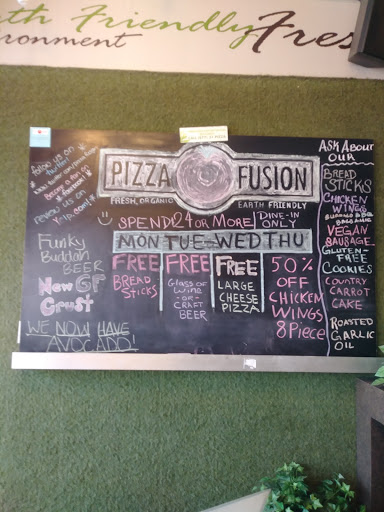 th Friendly Fres
ironment
PIZZA FUSION
FRESH, ORGANIC EARTH FRIENDLY
Follow us on
twitter!
Become a fan on
Facebook
review us on
Yelp.com!
Funky
Buddah
BEER
New GF
Crust
WE NOW HAVE
AVOCADO!
SPEND $24 OR MORE! DINE-IN
ONLY
MON TUE WED THU
FREE
BREAD
STICKS
FREE
Glass of
Wine
-OR-
CRAFT
BEER
FREE
LARGE
CHEESE
PIZZA
50%
OFF
CHICKEN
WINGS
8 Piece
ASK About
OUR
BREAD
STICKS
CHICKEN
WINGS
VEGAN
SAUSAGE
GLUTEN-
FREE
COOKIES
COUNTRY
CARROT
CAKE
ROASTED
GARLIC
OIL